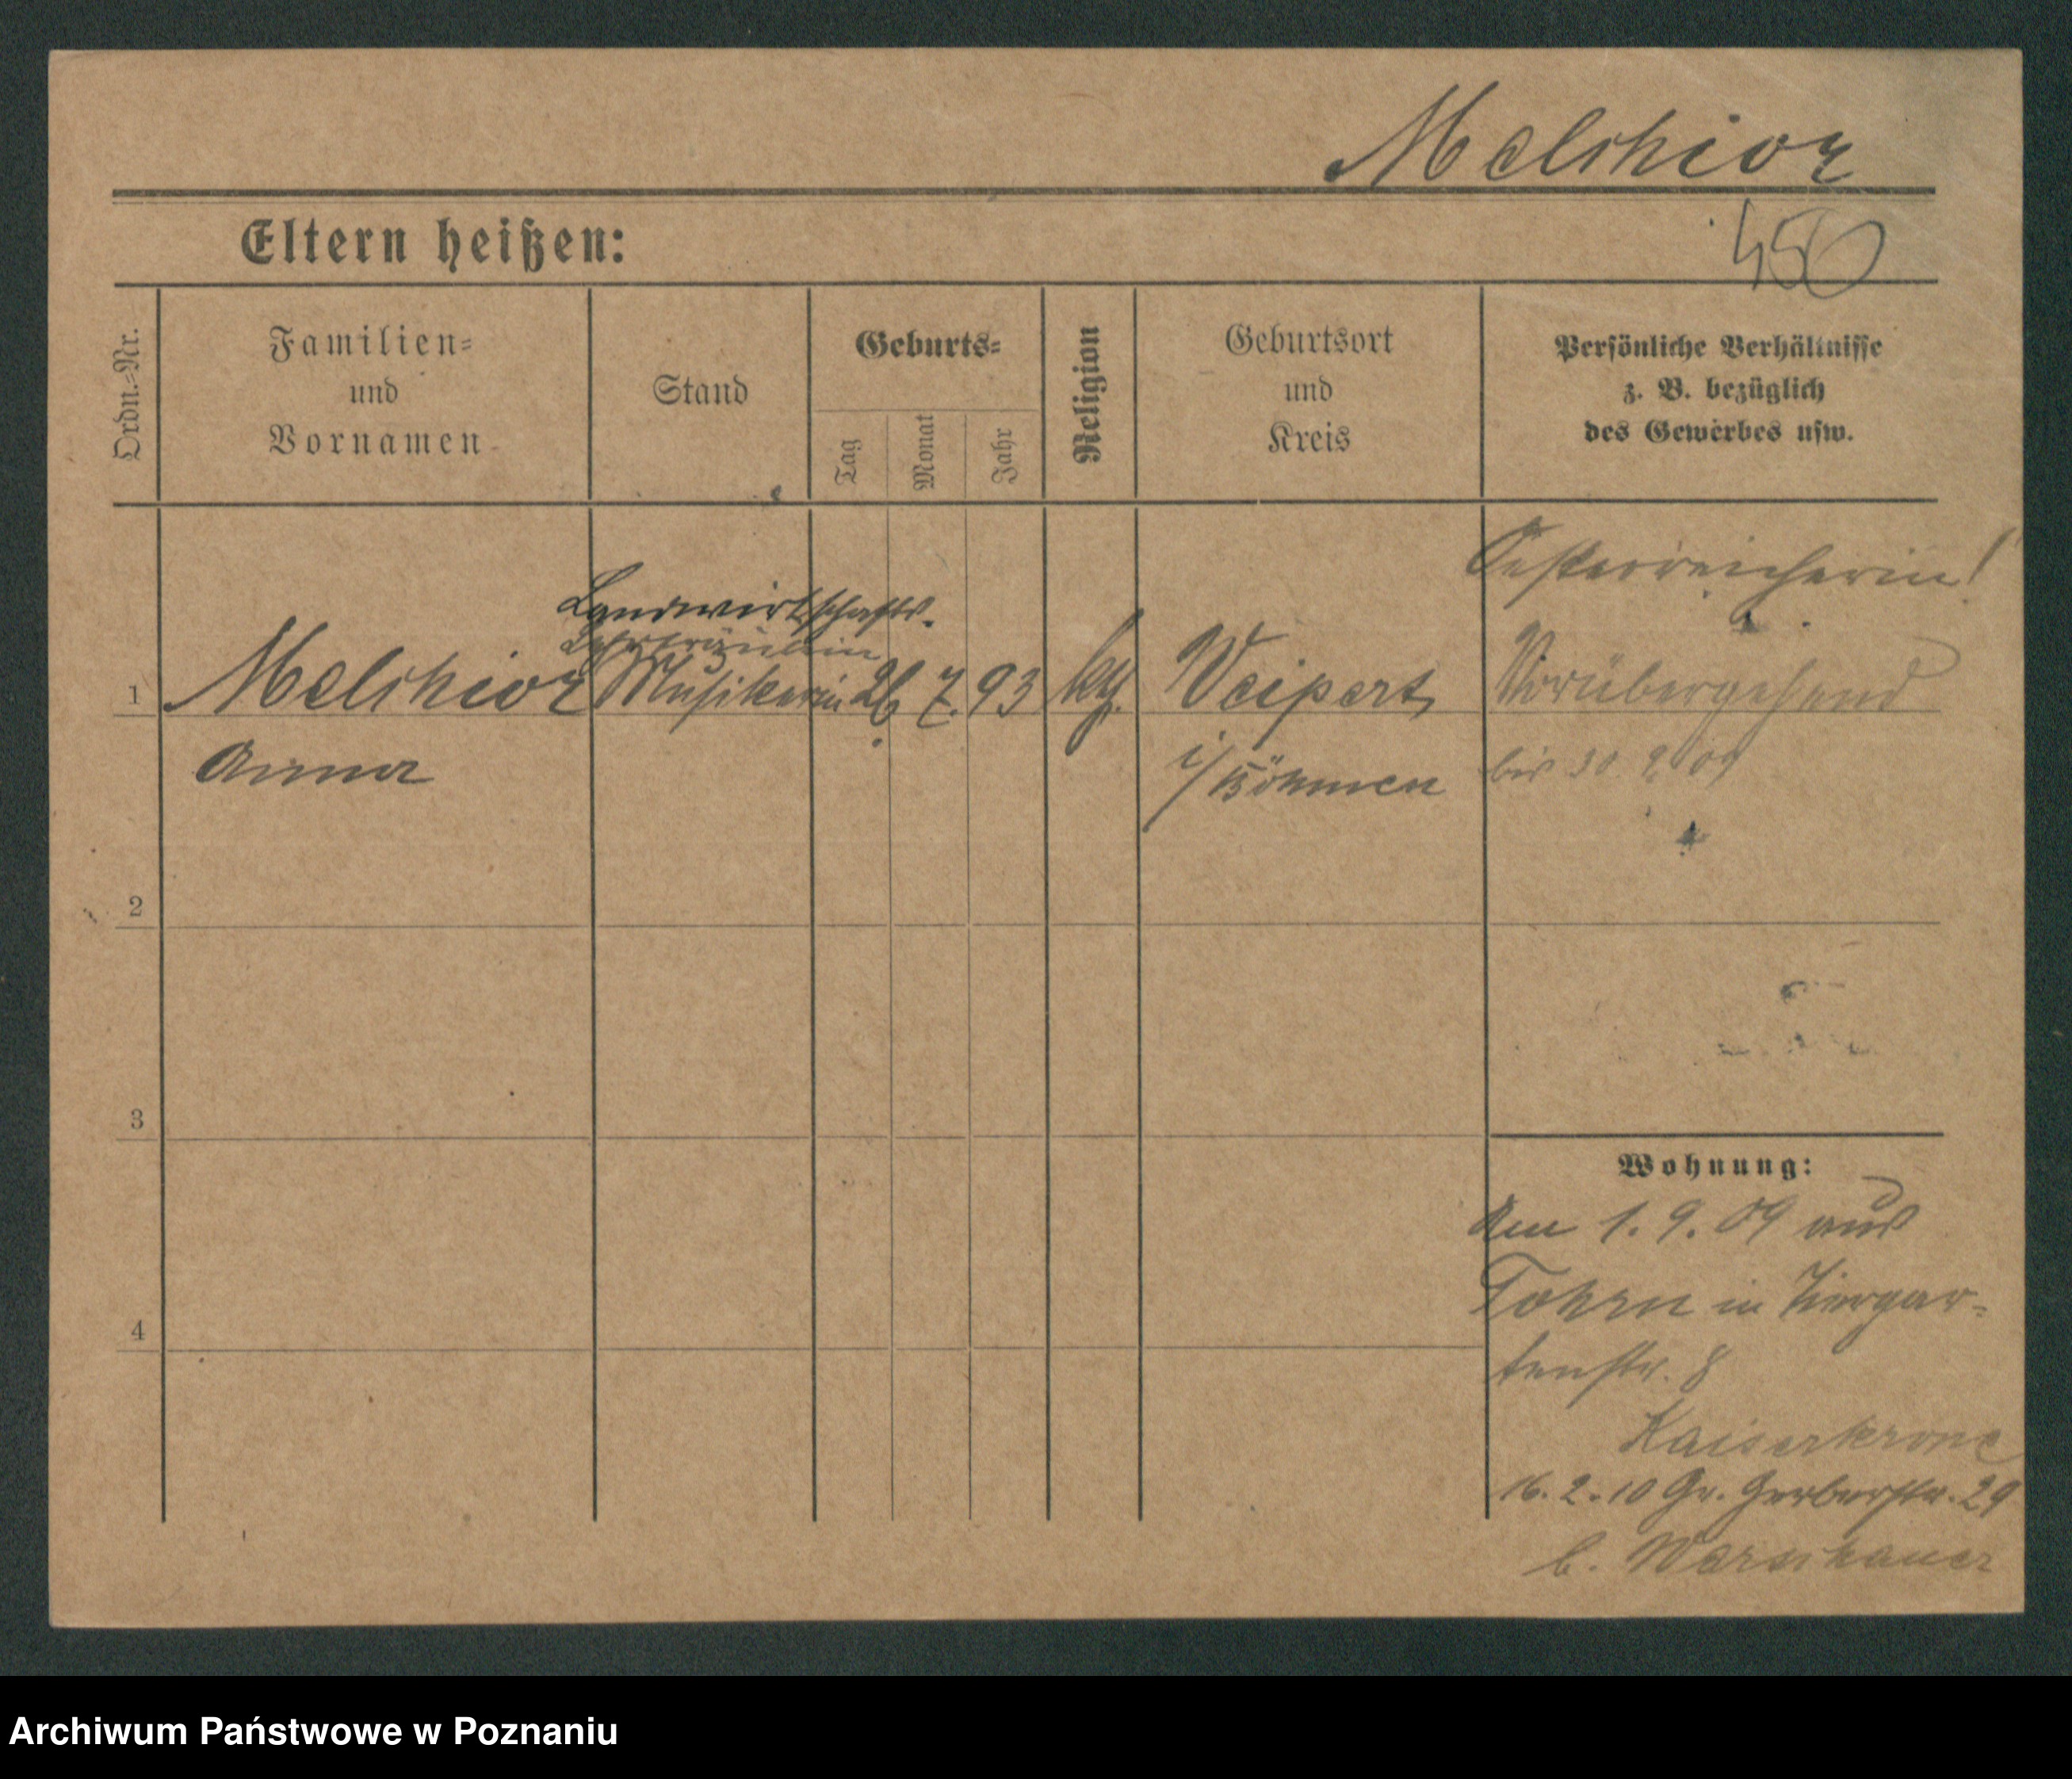 Melchior
450
Eltern heißen:
Ordn.-Nr.
Familien-
und
Vornamen
Stand
Geburts-
Tag
Monat
Jahr
Religion
Geburtsort
und
Kreis
Persönliche Verhältnisse
z. B. bezüglich
des Gewerbes usw.
Oesterreicherin!
Landwirtschafts-
Lehrfräulein
1 Melchior Musikerin 26 7. 93 ktl. Weipert, Vorübergehend
Anna i/Böhmen bis 30. 9. 09
2
3
Wohnung:
Am 1. 9. 09 aus
Tohrn in Tiergar-
4
tenstr. 8
Kaiserkrone
16. 2. 10 Gr. Gerberstr. 29
b. Warschauer
Archiwum Państwowe w Poznaniu